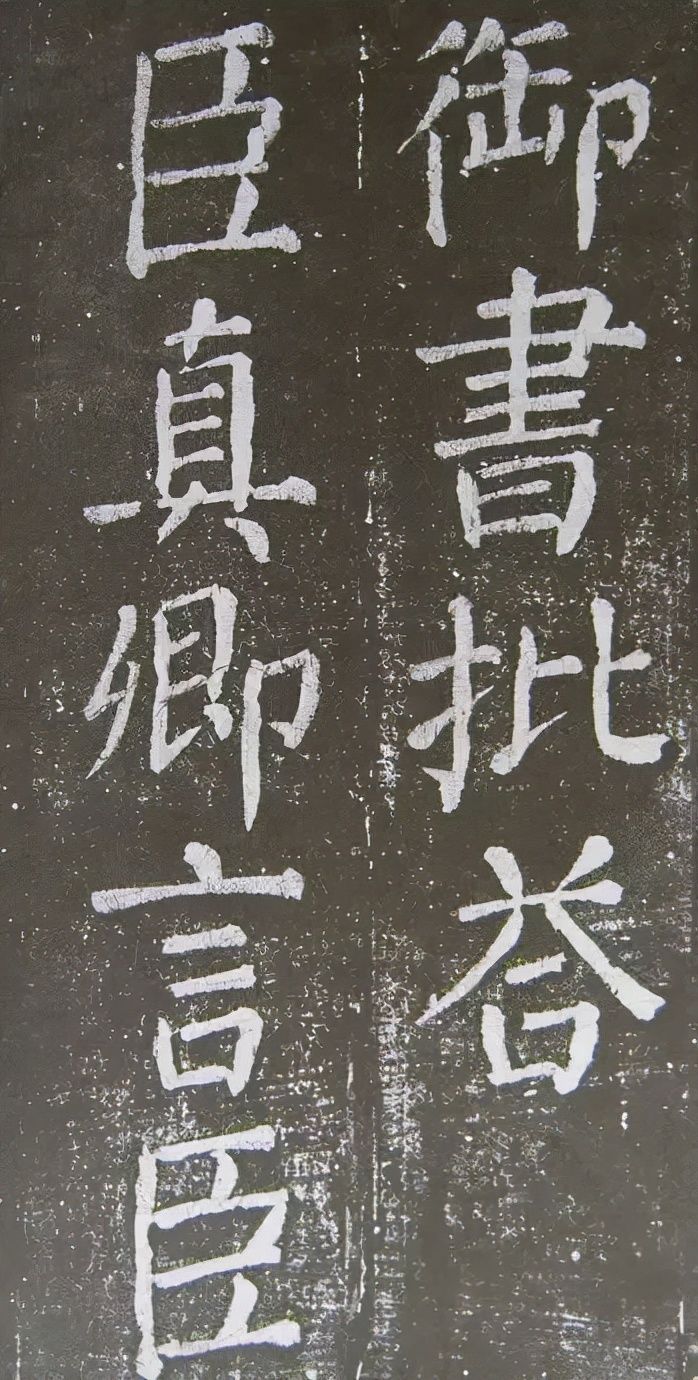 御書批荅
臣真卿言臣